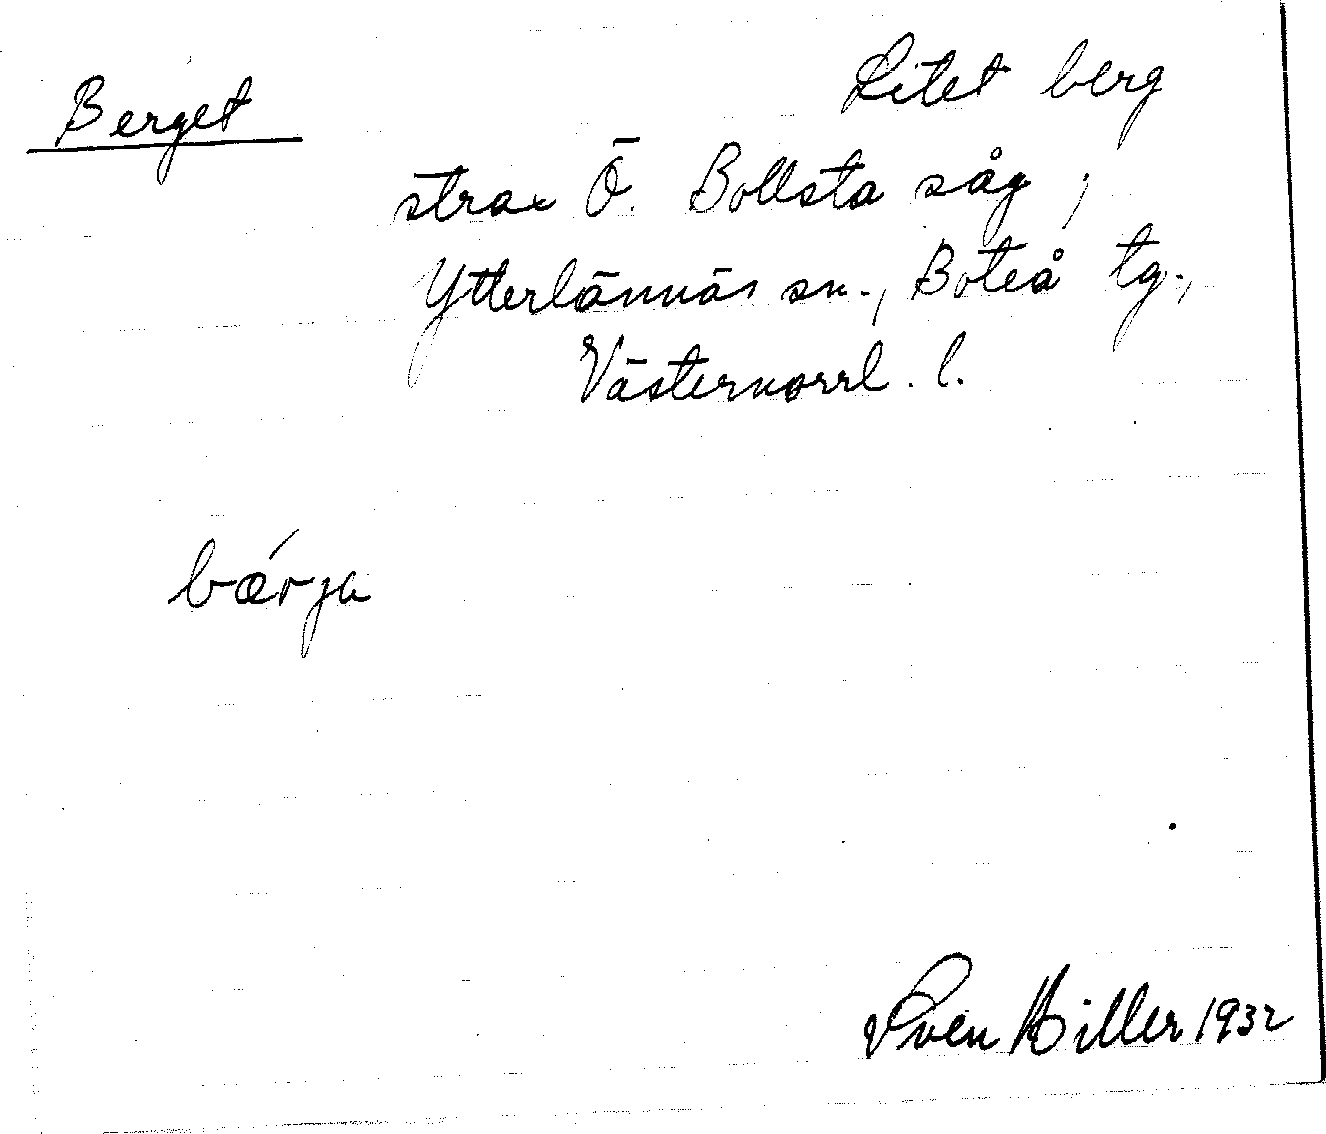 Berget
Litet berg
strax Ö. Bollsta såg,
Ytterlännäs sn., Boteå tg.,
Västernorrl. l.
bǽrja
Sven Hiller 1932